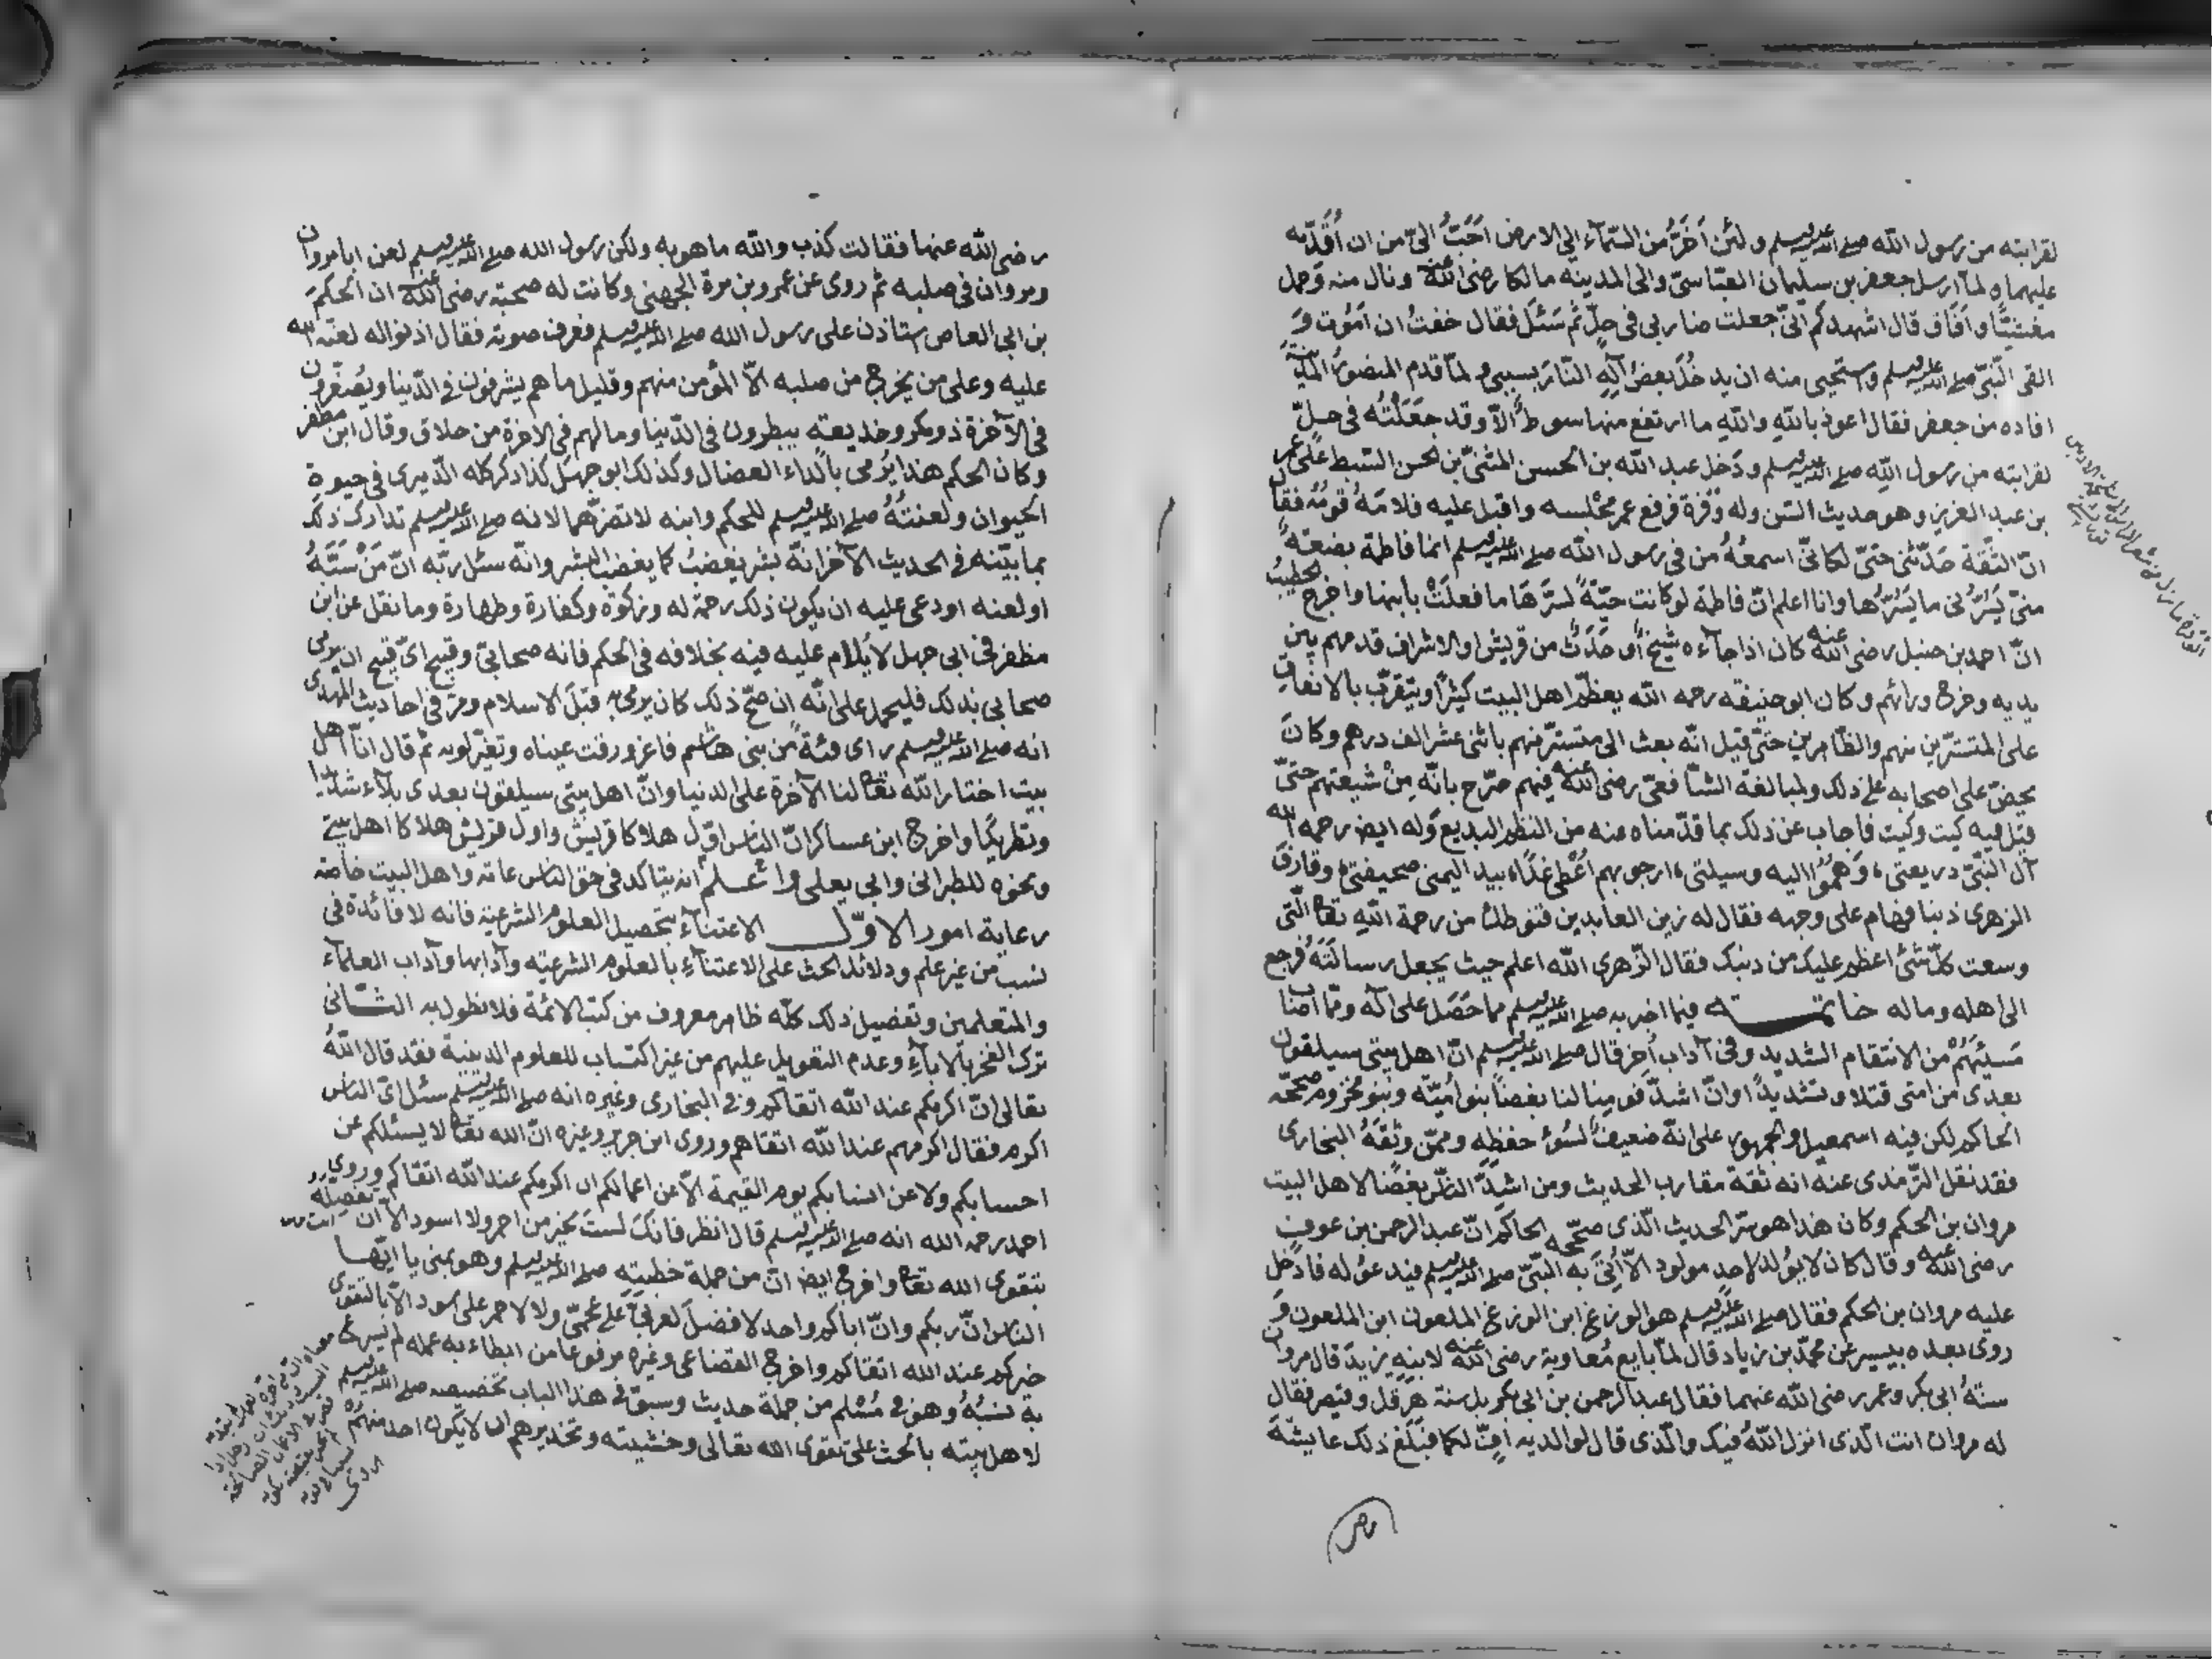 لقرابته من رسول الله صلى الله عليه وسلم ولئن أَخَرَّ من السّمآء الى الارض اَحَبُّ الىّ من ان اُقَدِّمه
عليهماه لمآ ارسل جعفر بن سليمان العبّاسىّ والى المدينه مالكا رضى الله عنه ونال منه وحمل
مغشيًّا وآفاق قال اشهدكم انىّ جعلت ضاربى فى حلّ ثم سَئل فقال خفتُ ان اَمُوت وَ
القى النّبىّ صلى الله عليه وسلم واستحيى منه ان يدخُلَ بعضُ آلِهِ النّارَ بسببى ولمّا قدم المنصورُ المدينةَ
افاده من جعفر فقال اعوذ بالله والله ما ارتفع منها سوط الّا وقد جعَلْتُه فى حلّ
لقرابته من رسول الله صلى الله عليه وسلم ودَخل عبد الله بن الحسن المثنىّ بن الحسن السّبط على عمر
بن عبد العزيز وهو حديث السّن وله وَفْرة فرفع عمر مجْلسه واقبل عليه فلامَهُ قومُهُ فقال
انّ الثّقة حَدّثنى حتىّ لكانىّ اسمعُهُ من فى رسول الله صلى الله عليه وسلم انما فاطمة بضعةٌ
منىّ يَسُرُّنى ما يَسُرُّها وانا اعلم انّ فاطمة لو كانت حيّةً لسَرَّهَا ما فعلتُ بابنها واخرج الخطيبُ
انّ احمد بن حنبل رضى الله عنه كان اذا جآءه شيخٌ أو حَدَثٌ من قريش او الاشراف قدمهم بين
يديه وخرج ورائهم وكان ابو حنيفه رحمه الله يعظّم اهل البيت كثيرًا ويتقرّب بالانفاق
على المتستّرين منهم والظّاهرين حتىّ قيل انّه بعث الى متستّر منهم باثنى عشر الف درهم وكانَ
يحضّ على اصحابه على ذلك ولمبالغة الشّافعىّ رضى الله عنه فيهم صرّح بانّه مِنْ شيعتهم حتىّ
قيل فيه كيت وكيت فاجاب عن ذلك بما قدّمناه عنه من النظم البديع وَله ايض رحمه الله
آل النّبىّ دريعتى ، وَهُمُو اليه وسيلتى ، ارجو بهم اُعْطى غدًا ، بيد اليمنى صحيفتى ، وقارفَ
الزهرى ذنبا فهام على وجهه فقال له زين العابدين قنوطك من رحمة الله تعا الّتى
وسعت كلّ شئ اعظم عليك من ذنبك فقال الزّهرى الله اعلم حيث يجعل رسالَتَهُ فرجع
الى اهله وماله خاتمــــــه فيما اخبر به صلى الله عليه وسلم مما حَصَل على آله ومّما اصَابَ
مَسيئَهُمْ من الانتقام الشّديد وفى آداب اُخر قال صلى الله عليه وسلم انّ اهل بيتى سيلقون
بعدى من امّتى قتلا وتشديدًا وانّ اشدّ قومنا لنا بغضًا بنو أميّة وبنو مخزوم صحّحه
الحاكم لكن فيه اسمعيل والجمهور على انّهُ ضعيفٌ لسُوءِ حفظِهِ وممّن وثّقَهُ البخارى
فقد نقل التّرمذى عنه انه ثقة مقارب الحديث ومن اشدّ النّاس بغضًا لاهل البيت
مروان بن الحكم وكان هذا هو سرّ الحديث الّذى صحّحه الحاكم انّ عبد الرحمن بن عوف
رضى الله عنه وقال كان لا يُولد لاحد مولود الاّ اُتِىَ به النّبىّ صلى الله عليه وسلم فيدعو له فادخل
عليه مروان بن الحكم فقال صلى الله عليه وسلم هو الوزغ ابن الوزغ الملعون ابن الملعون وَ
روى بعده بيسير عن محمّد بن زياد قال لمّا بايع مُعاوية رضى الله عنه لابنهِ يزيد قال مروان
سنّةُ ابى بكر وعمر رضى الله عنهما فقال عبد الرحمن بن ابى بكر بل سنة هرقل وقيصر فقال
له مروان انت الّذى انزل اللهُ فيك والّذى قال لوالديه اُفٍّ لكما فبَلَغ ذلك عايشة
رضى الله عنها فقالت كذب والله ما هو به ولكن رسول الله صلى الله عليه وسلم لعن ابا مروان
ومروان فى صلبه ثم روى عن عمرو بن مرة الجهنى وكانت له صحبة رضى الله عنه ان الحكمَ
بن ابى العاص استاذن على رسول الله صلى الله عليه وسلم فعرف صوته فقال اذنوا له لعنة الله
عليه وعلى من يخرج من صلبه الاّ المؤمن منهم وقليل ما هم يشرفون فى الدّنيا ويُصَغَّرون
فى الآخرة ذو مكر وخديعة يبطرون فى الدّنيا وما لهم فى الاخرة من خلاق وقال ابن مظفر
وكان الحكم هذا يُرمى بالداء العضال وكذلك ابو جهل كذا ذكر كله الدّميرى فى حيوة
الحيوان ولعنتُهُ صلى الله عليه وسلم للحكم وابنه لا تضرّهما لانه صلى الله عليه وسلم تدارك ذلك
بما بيّنه فى الحديث الآخر انهّ بشر يغضبُ كما يغضب البشر وانّه سئل ربّه انّ مَنْ سَبَّهُ
او لعنه او دعى عليه ان يكون ذلك رحمة له وزكوة وكفارة وطهارة وما نقل عن ابن
مظفر فى ابى جهل لا يُلام عليه فيه بخلافه فى الحكم فانه صحابىّ وقبيح اىّ قبيح ان يرمى
صحابى بذلك فليحمل على انّه ان صحّ ذلك كان يرمى به قبل الاسلام ومرّ فى احاديث المهدى
انه صلى الله عليه وسلم راى فئةً من بنى هاشم فاغرورقت عيناه وتغيّر لونه ثم قال انّا اهل
بيت اختار الله تعا لنا الآخرة على الدنيا وانّ اهل بيتى سيلقون بعدى بلآء شديدا
وتطريدًا واخرج ابن عساكر انّ الناس اوّل هلاكا قريش واول قريش هلاكا اهل بيتى
ونحوه للطبرانى وابى يعلى واعلم انه يتاكد فى حق الناس عامّة واهل البيت خاصّة
رعاية امور الاوّل الاعتنآء بتحصيل العلوم الشرعيّة فانه لا فائدة فى
نسب من غير علم ودلائل الحث على الاعتنآء بالعلوم الشرعيّه وآدابها وآداب العلمآء
والمتعلمين وتفضيل ذلك كلّه ظاهر معروف من كتب الائمة فلا نطول به الثّانى
ترك الفخر بالابآء وعدم التعويل عليهم من غير اكتساب للعلوم الدينية فقد قال اللهُ
تعالى انّ اكرمكم عند الله اتقاكم وفى البخارى وغيره انه صلى الله عليه وسلم سئل اىّ الناس
اكرم فقال اكرمهم عند الله اتقاهم وروى ابن جرير وغيره انّ الله تعا لا يسئلكم عن
احسابكم ولا عن انسابكم يوم القيمة الاّ عن اعمالكم ان اكرمكم عند الله اتقاكم وروى
احمد رحمه الله انه صلى الله عليه وسلم قال انظر فانّك لستَ بخير من احمر ولا اسود الاّ ان تفضله
بتقوى الله تعا واخرج ايض انّ من جملة خطبتِهِ صلى الله عليه وسلم وهو بمنى يا ايّها
الناس انّ ربكم وانّ اباكم واحد لا فضلَ لعربىّ على عجمىّ ولا لاحمر على اسود الاّ بالتقوى
خيركم عند الله اتقاكم واخرج القضاعى وغيره مرفوعا من ابطاء به عمله لم يسرع
به نسبُهُ وهو فى مُسْلم من جملة حديث وسبق فى هذا الباب تخصيصه صلى الله عليه وسلم
لاهل بيته بالحث على تقوى الله تعالى وخشيته وتحذيرهم ان لا يكون احد منهم